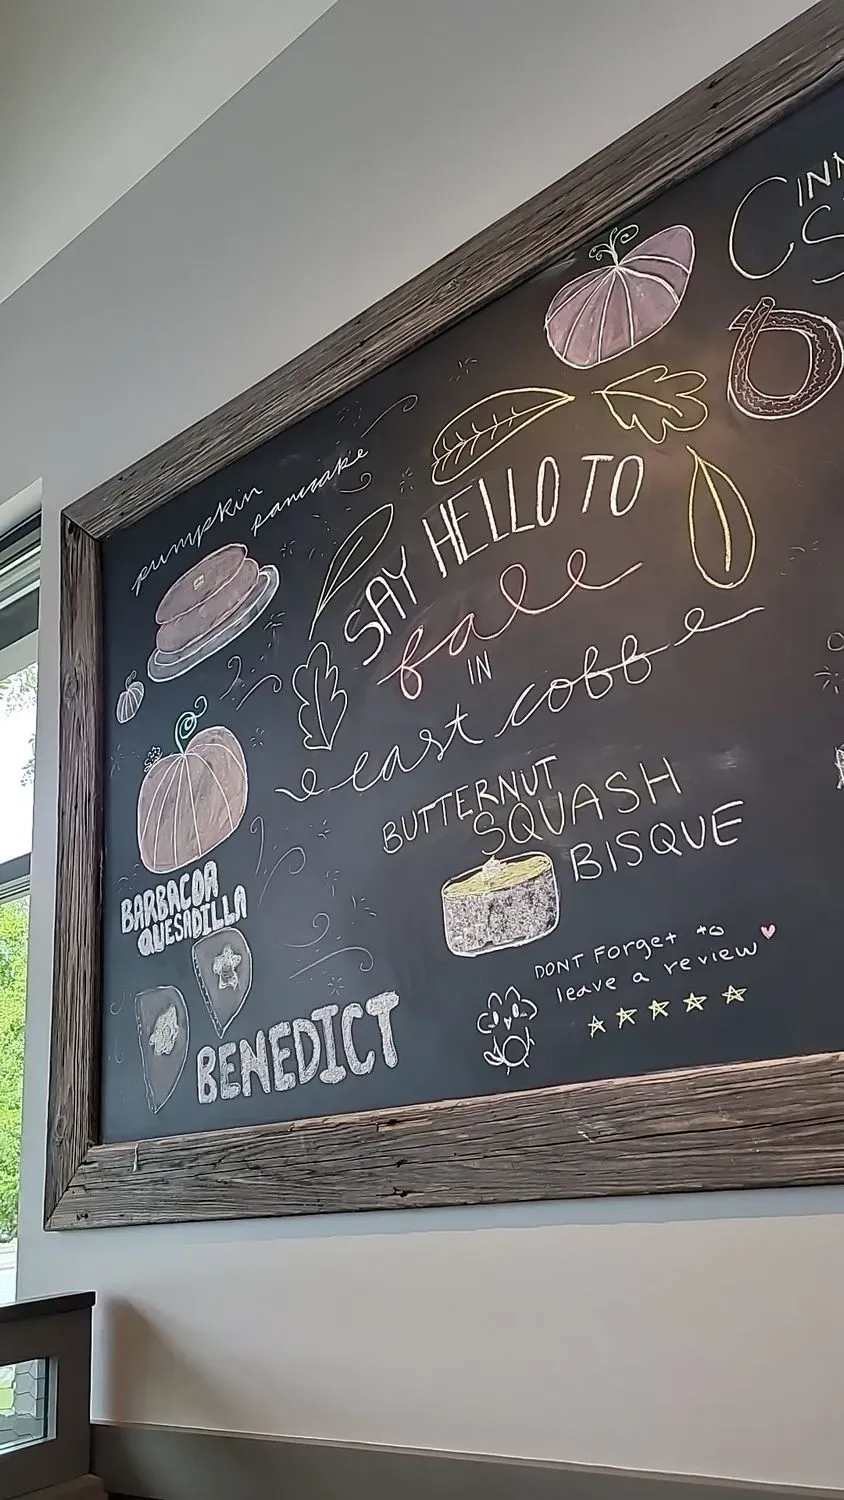 pumpkin
pancake
SAY HELLO TO
fall
IN
east cobb
BUTTERNUT
SQUASH
BISQUE
BARBACOA
QUESADILLA
BENEDICT
DONT Forget to
leave a review
CINN
S